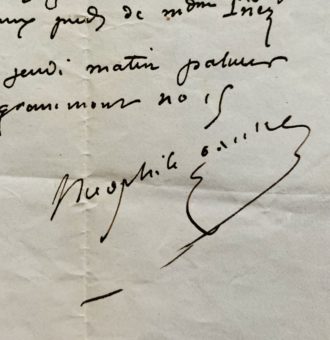 aux pieds de mdme Inez
jeudi matin palmer
grammont no 15
Theophile Gautier